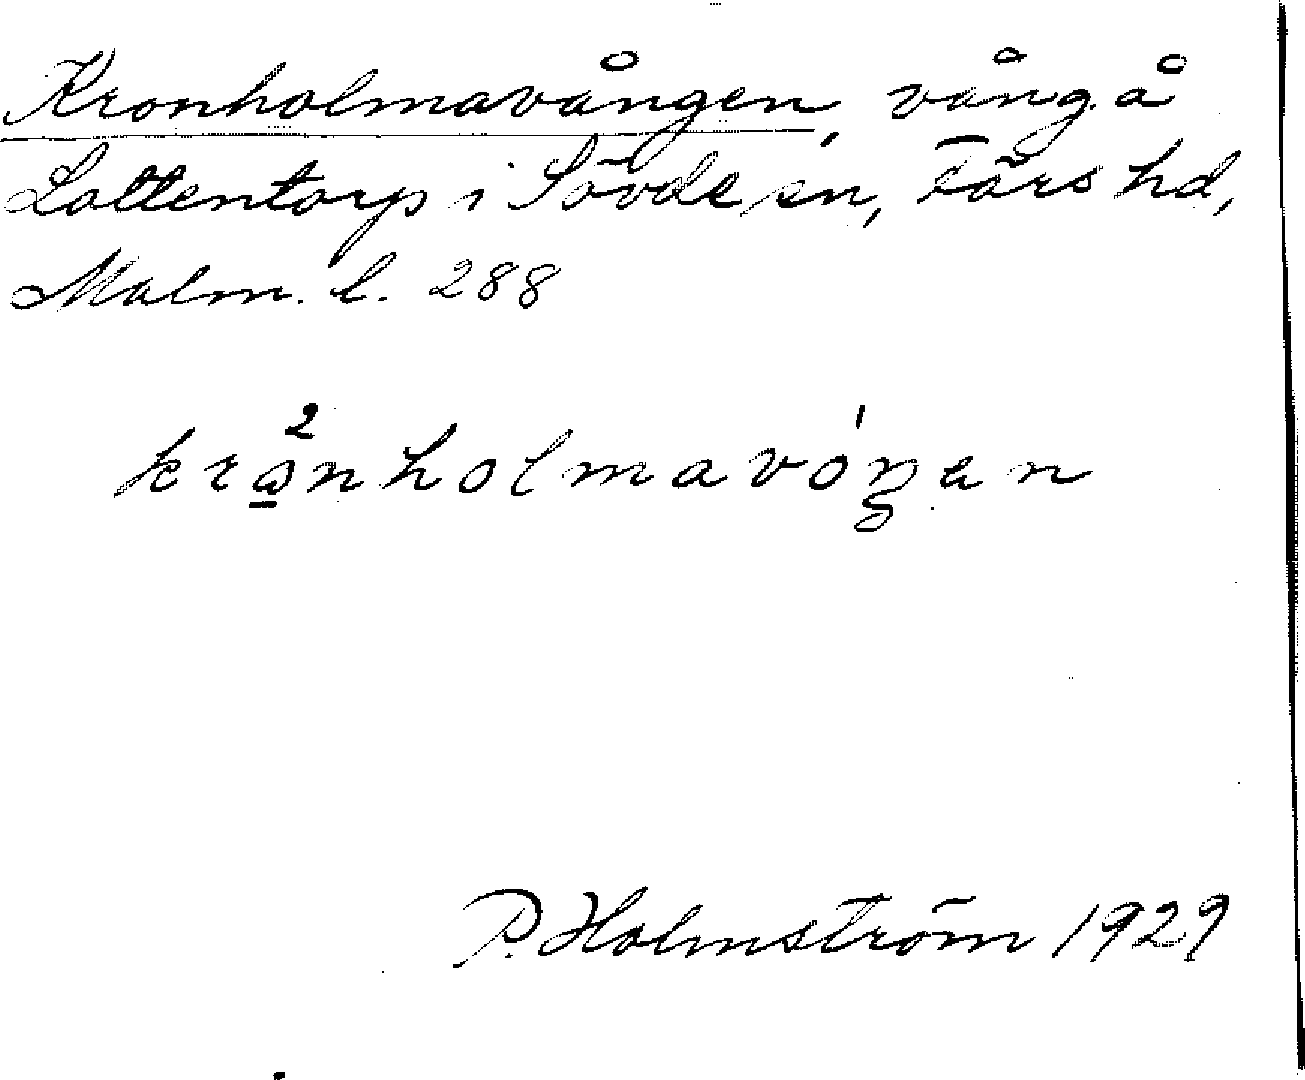 Kronholmavången, vång å
Lottentorp i Sövde sn, Färs hd,
Malm. l. 288
krω̲²nholmavóŋen
P. Holmström 1929